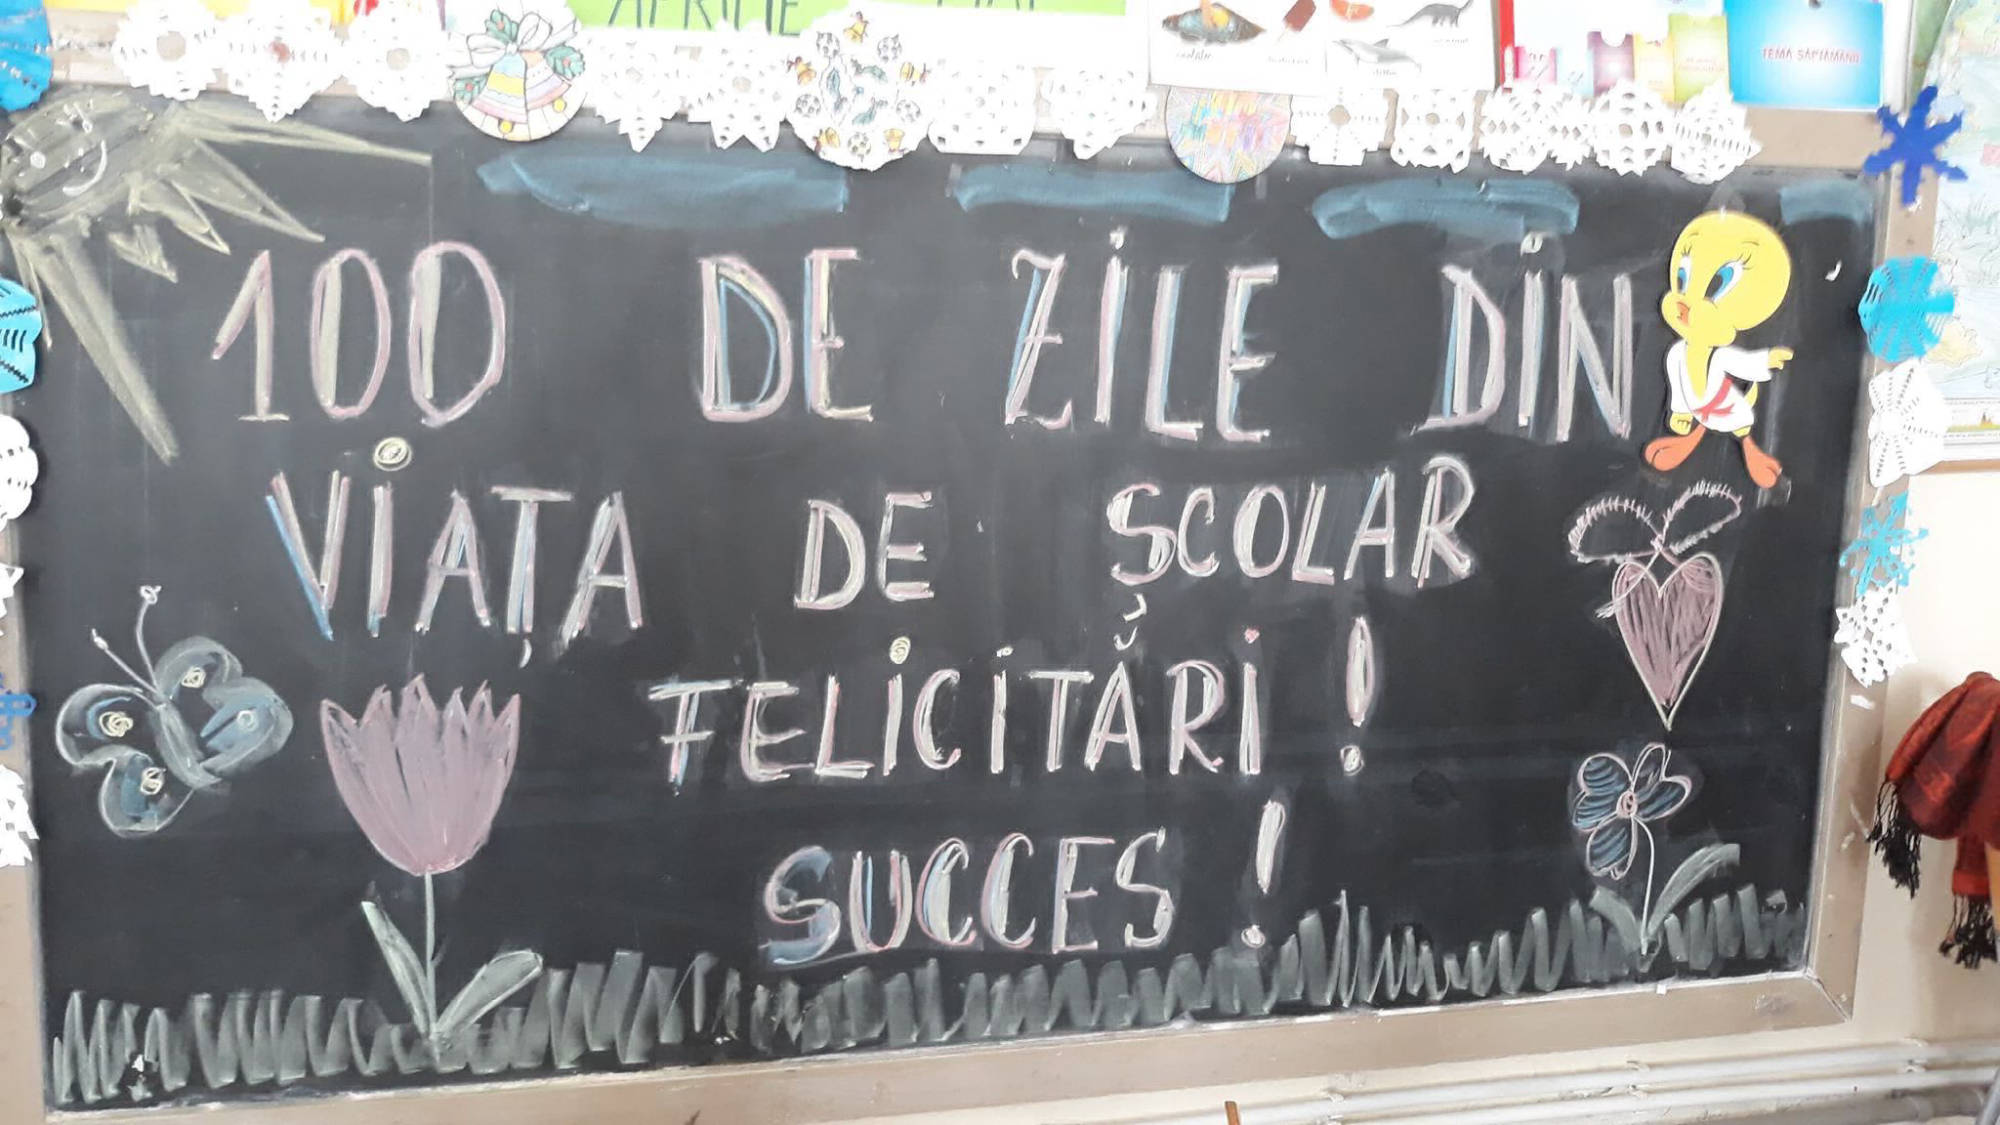 APRILIE
MAI
TEMA SĂPTĂMÂNII
100 DE ZILE DIN
VIAȚA DE ȘCOLAR
FELICITĂRI !
SUCCES !